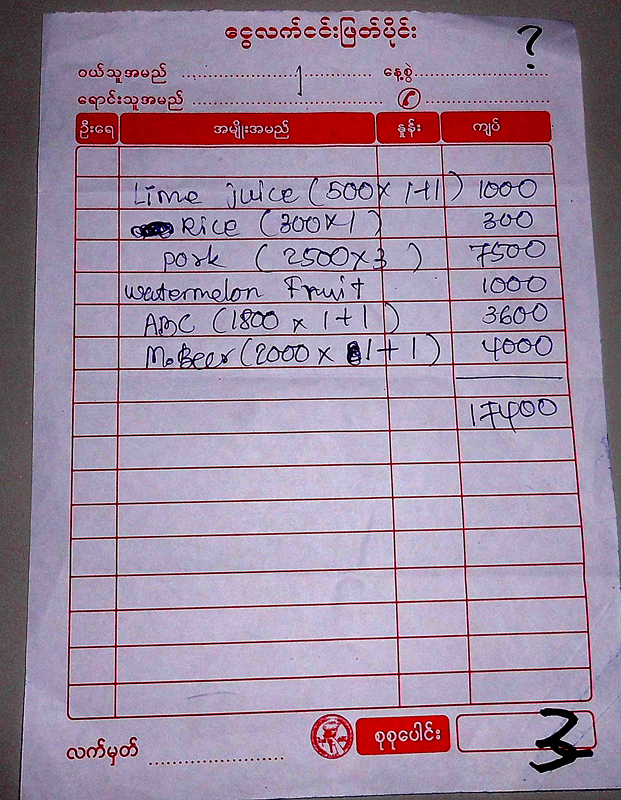 ငွေလက်ငင်းဖြတ်ပိုင်း ?
ဝယ်သူအမည် 1 နေ့စွဲ
ရောင်းသူအမည်
ဦးရေ အမျိုးအမည် နှုန်း ကျပ်
Lime juice (500 × 1+1) 1000
Rice (300×1) 300
pork (2500×3) 7500
watermelon Fruit 1000
ABC (1800 × 1+1) 3600
M.Beer (2000 × 1+1) 4000
17400
လက်မှတ် စုစုပေါင်း 3